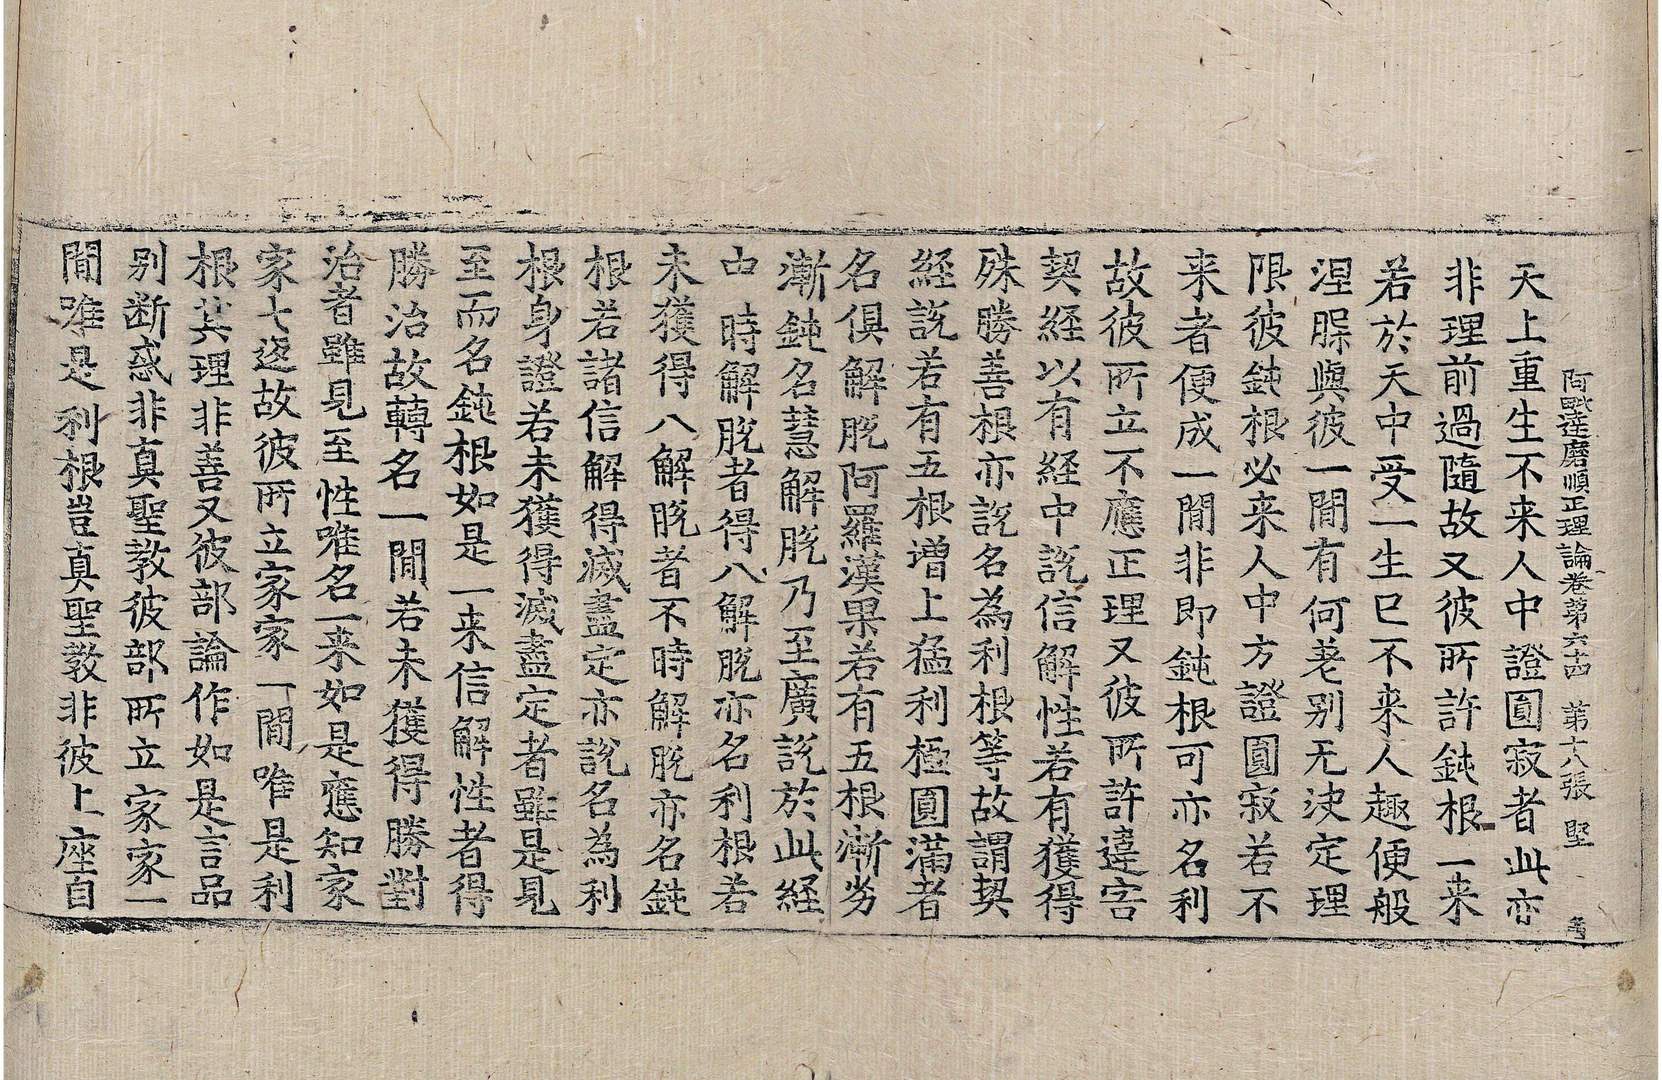 阿毗達磨順正理論卷第六十四 第十八張 堅
天上重生不来人中證圓寂者此亦
非理前過隨故又彼所許鈍根一来
若於天中受一生已不来人趣便般
涅槃與彼一閒有何差别无决定理
限彼鈍根必来人中方證圓寂若不
来者便成一閒非即鈍根可亦名利
故彼所立不應正理又彼所許違害
契經以有經中說信解性若有獲得
殊勝善根亦說名為利根等故謂契
經說若有五根增上猛利極圓滿者
名俱解脫阿羅漢果若有五根漸劣
漸鈍名慧解脫乃至廣說於此經
中時解脫者得八解脫亦名利根若
未獲得八解脫者不時解脫亦名鈍
根若諸信解得滅盡定亦說名為利
根身證若未獲得滅盡定者雖是見
至而名鈍根如是一来信解性者得
勝治故轉名一閒若未獲得勝對
治者雖見至性唯名一来如是應知家
家七返故彼所立家家一閒唯是利
根其理非善又彼部論作如是言品
别断惑非真聖教彼部所立家家一
閒唯是利根豈真聖教非彼上座自